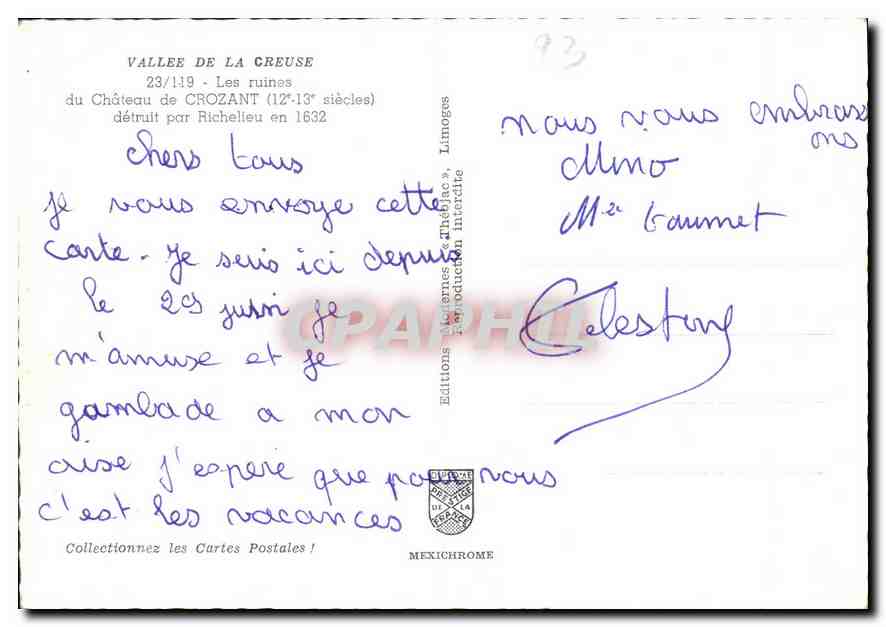 93
VALLEE DE LA CREUSE
23/119 - Les ruines
du Château de CROZANT (12e-13e siècles)
détruit par Richelieu en 1632
chers tous
je vous envoye cette
carte - Je suis ici depuis
le 29 juin je
m'amuse et je
gambade a mon
aise j'espere que pour vous
c'est les vacances
Collectionnez les Cartes Postales !
Editions Modernes « Théojac », Limoges
Reproduction interdite
CPAPHIL
DIPLOME
PRESTIGE
DE LA
FRANCE
MEXICHROME
nous vous embrass
ons
Mino
Mer Gaumet
Celestine